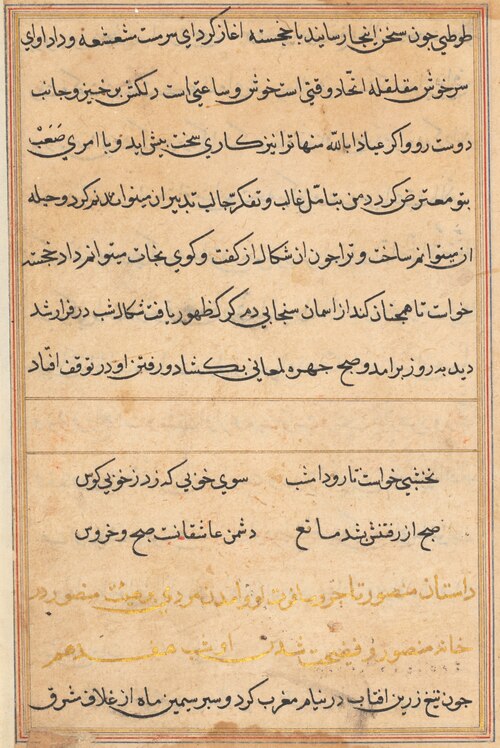 طوطی چون سخن اینجا رسانید با خجسته اغاز کرد ای سرمست شعشعه وداد و ای
سرخوش مقلقله اتحاد وقتی است خوش و ساعتی است دلکش برخیز و جانب
دوست رو و اکر عیاذا بالله منها ترا نیز کاری سخت پیش اید و با امری صعب
بتو معترض کردد من بتامل غالب و تفکر جالب تدبیر ان میتوانم کرد و حیله
ان میتوانم ساخت و ترا چون ان شکال از کفت و کوی نجات میتوانم داد خجسته
خواست تا همچنان کند از اسمان سنجابی دم کرک ظهور یافت شکال شب در فرار شد
دید به روز برامد و صبح چهره لمعانی بکشاد و رفتن او در توقف افتاد
نخشبی خواست تا رود امشب سوی خوبی که زد ز خوبی کوس
صبح از رفتنش بشد مانع دشمن عاشقانست صبح و خروس
داستان منصور تاجر و مسافرت او و امدن مردی بر هیئت منصور در
خانه منصور و فضیحت شدن او شب هفدهم
چون تیغ زرین افتاب در نیام مغرب کرد و سپر سیمین ماه از غلاف مشرق